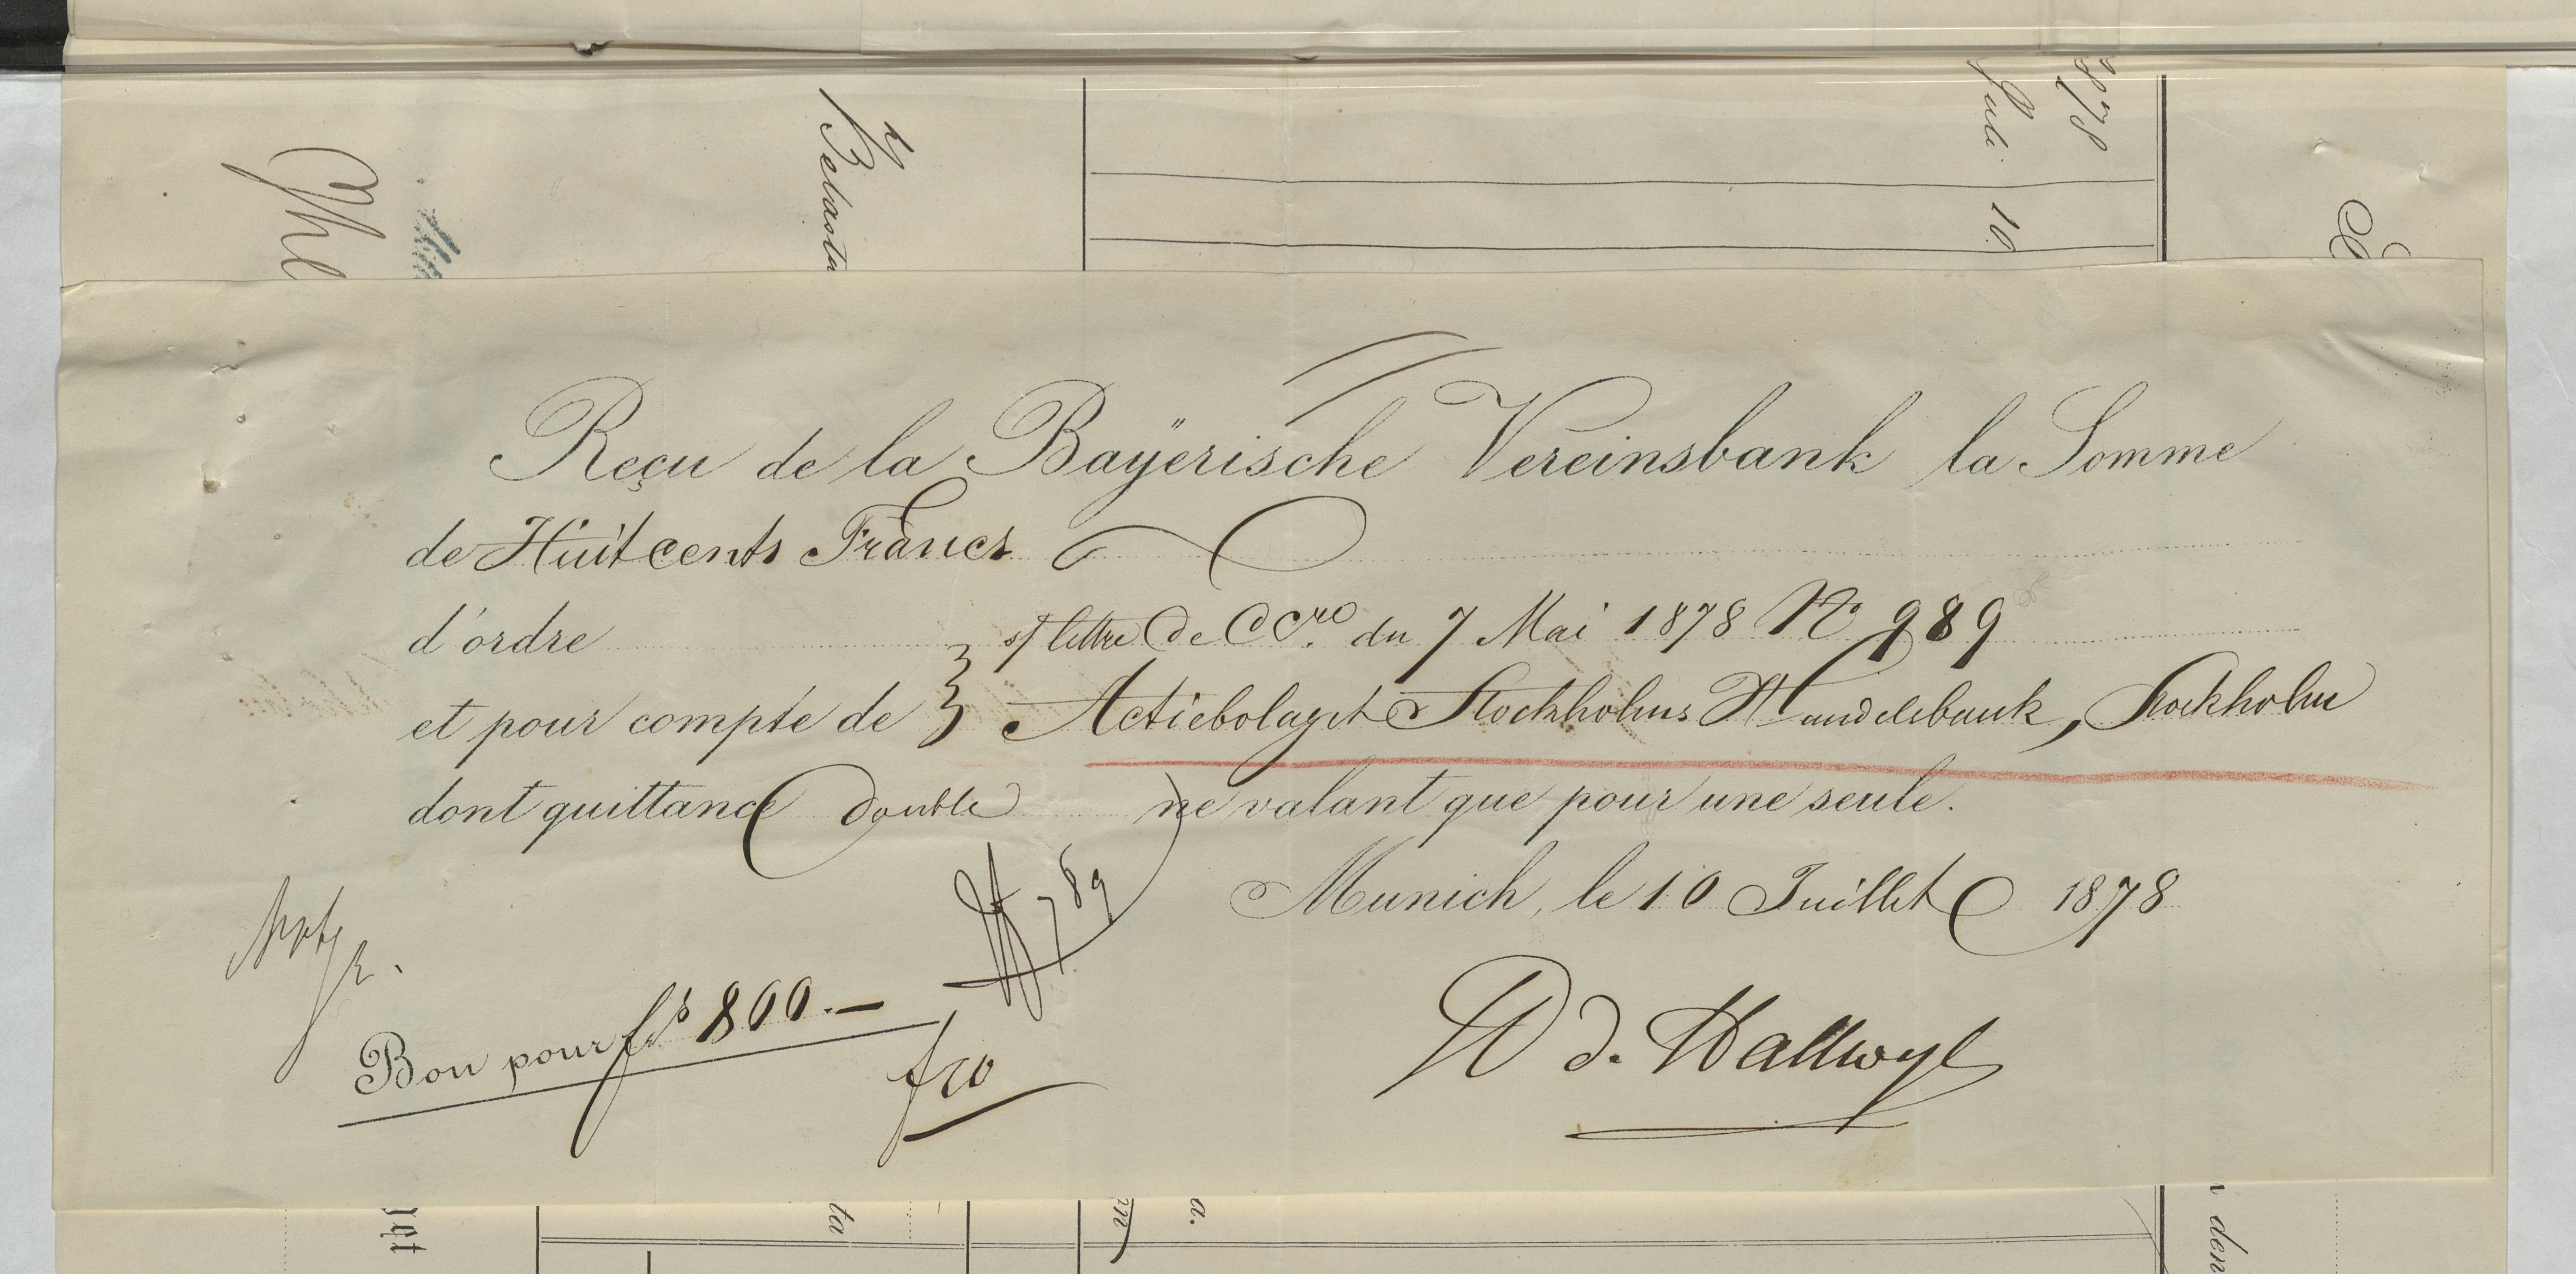 1878
Juli 10
4
Belasta
Reçu de la Bayerische Vereinsbank la Somme
de Huitcents Francs
d'ordre s/ lettre de Ccro. du 7 Mai 1878 No 989
et pour compte de } Actiebolaget Stockholms Handelsbank, Stockholm
dont quittance double ne valant que pour une seule.
Munich, le 10 Juillet 1878
789
Bon pour frs 800.—
W d. Hallwyl
ta
a.
den